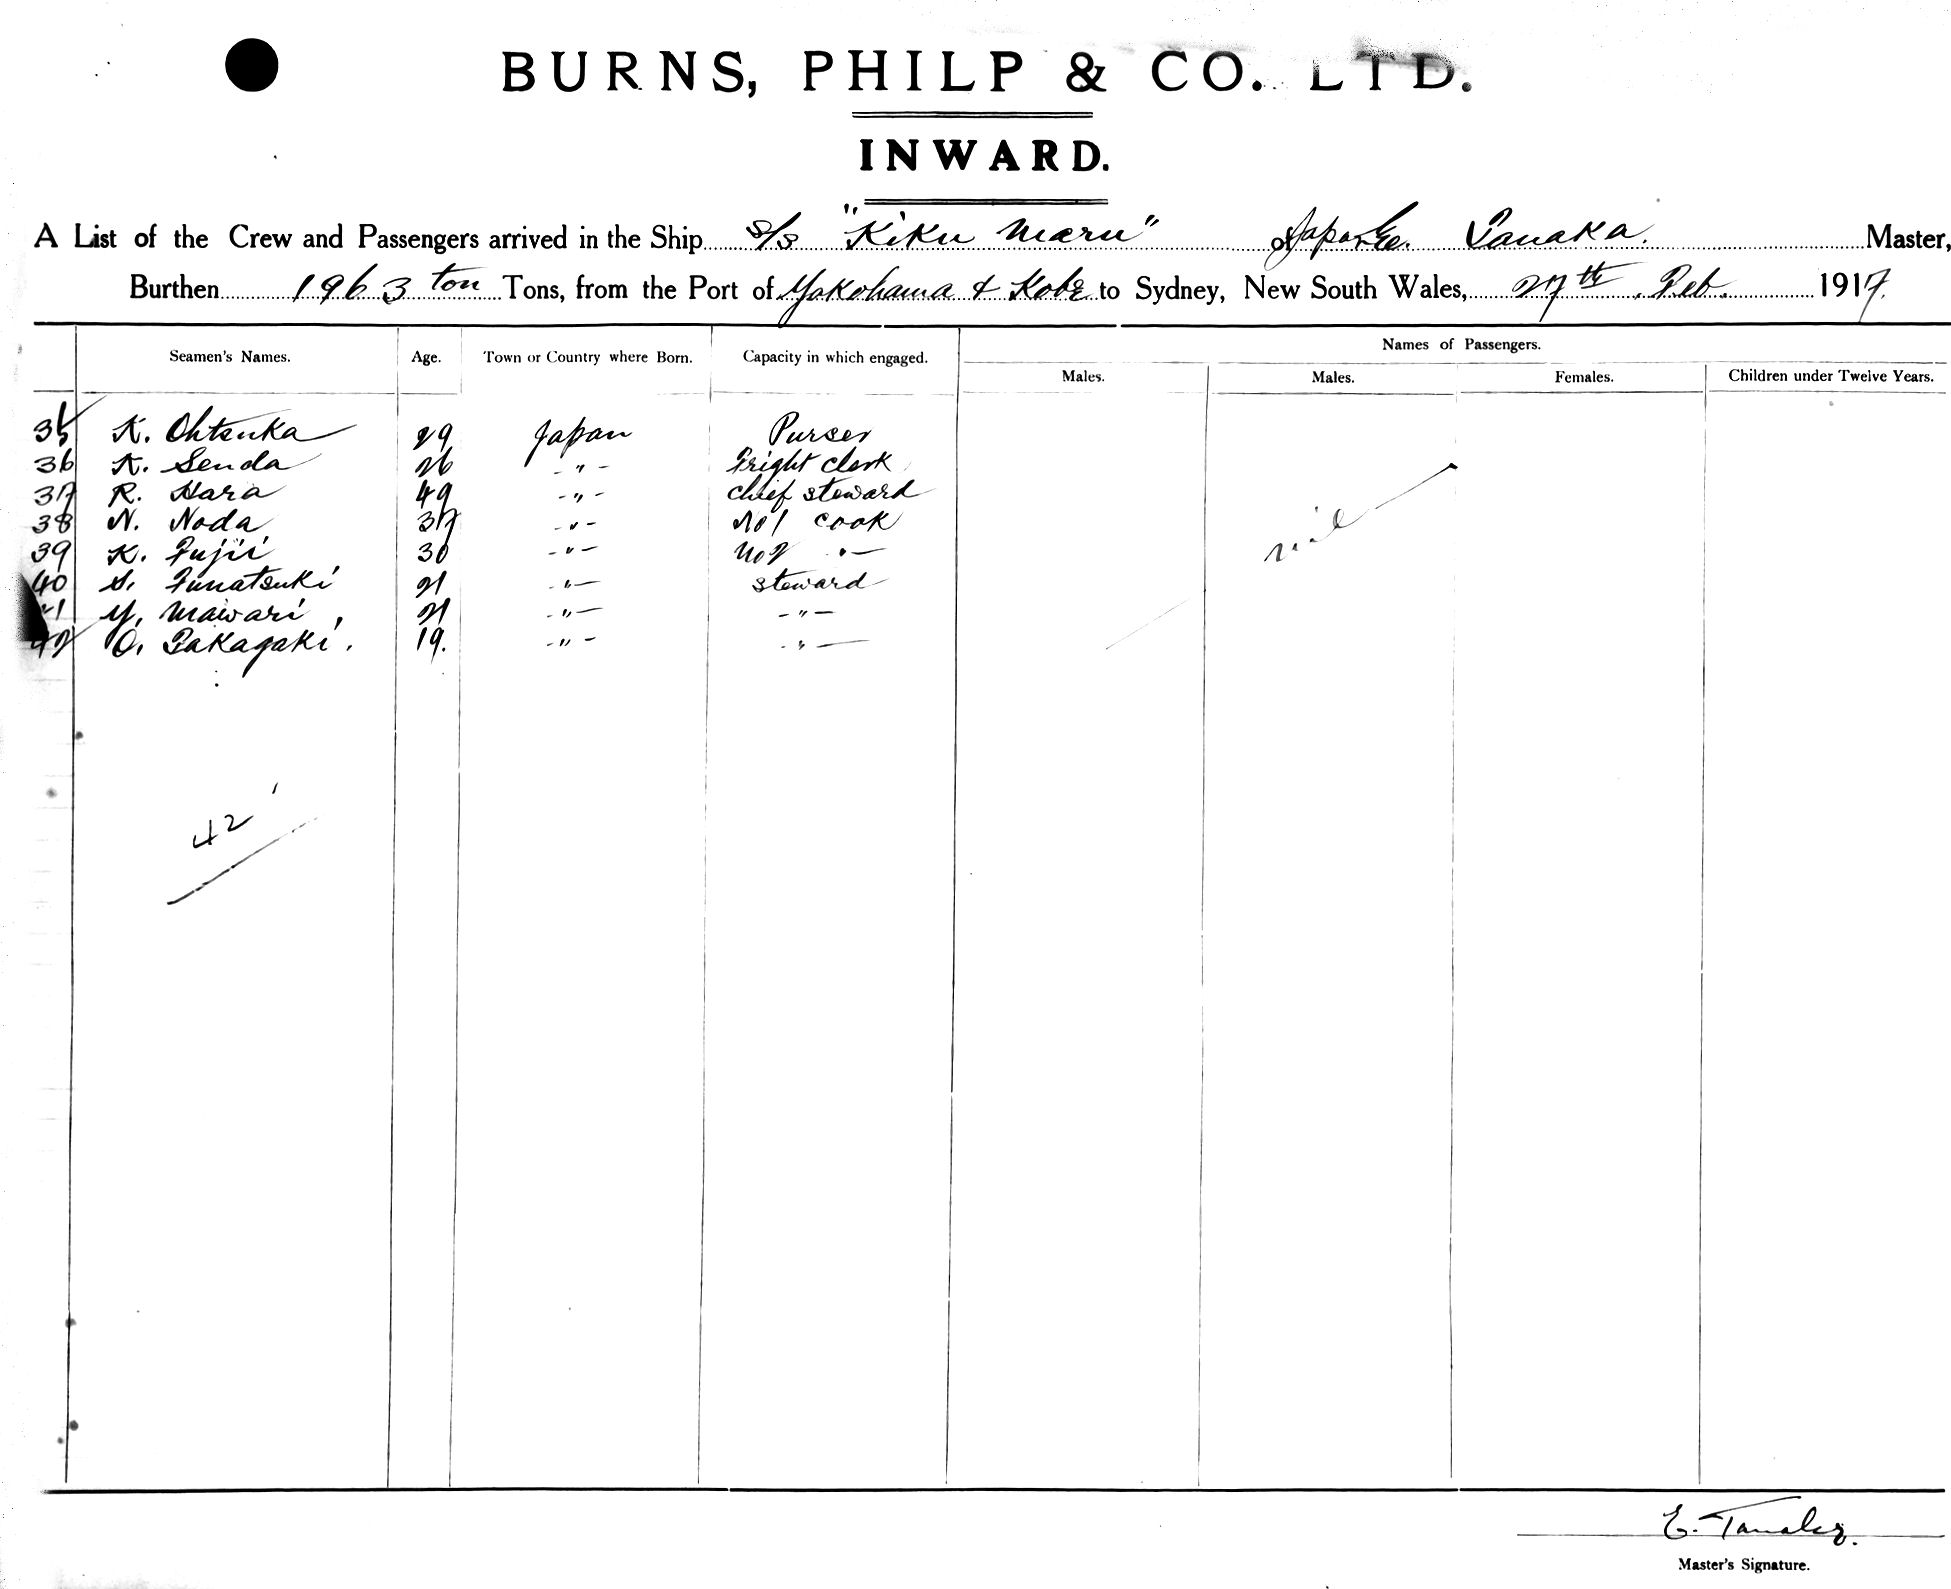 BURNS, PHILP & CO. LTD.
INWARD.
A List of the Crew and Passengers arrived in the Ship s/s "Kiku Maru" of Japan E. Tanaka. Master,
Burthen 1963 ton Tons, from the Port of Yokohama & Kobe to Sydney, New South Wales, 27th Feb. 1917.
Seamen's Names. Age. Town or Country where Born. Capacity in which engaged. Names of Passengers.
Males. Males. Females. Children under Twelve Years.
35 K. Ohtsuka 29 Japan Purser
36 K. Senda 26 -"- Fright clerk
37 R. Hara 49 -"- chief steward
38 N. Noda 37 -"- No1 cook
nil
39 K. Fujii 30 -"- No2 "-
40 S. Funatsuki 21 -"- steward
41 Y. Mawari, 21 -"- -"-
42 O. Takagaki. 19. -"- -"-
42
E. Tanaka.
Master's Signature.